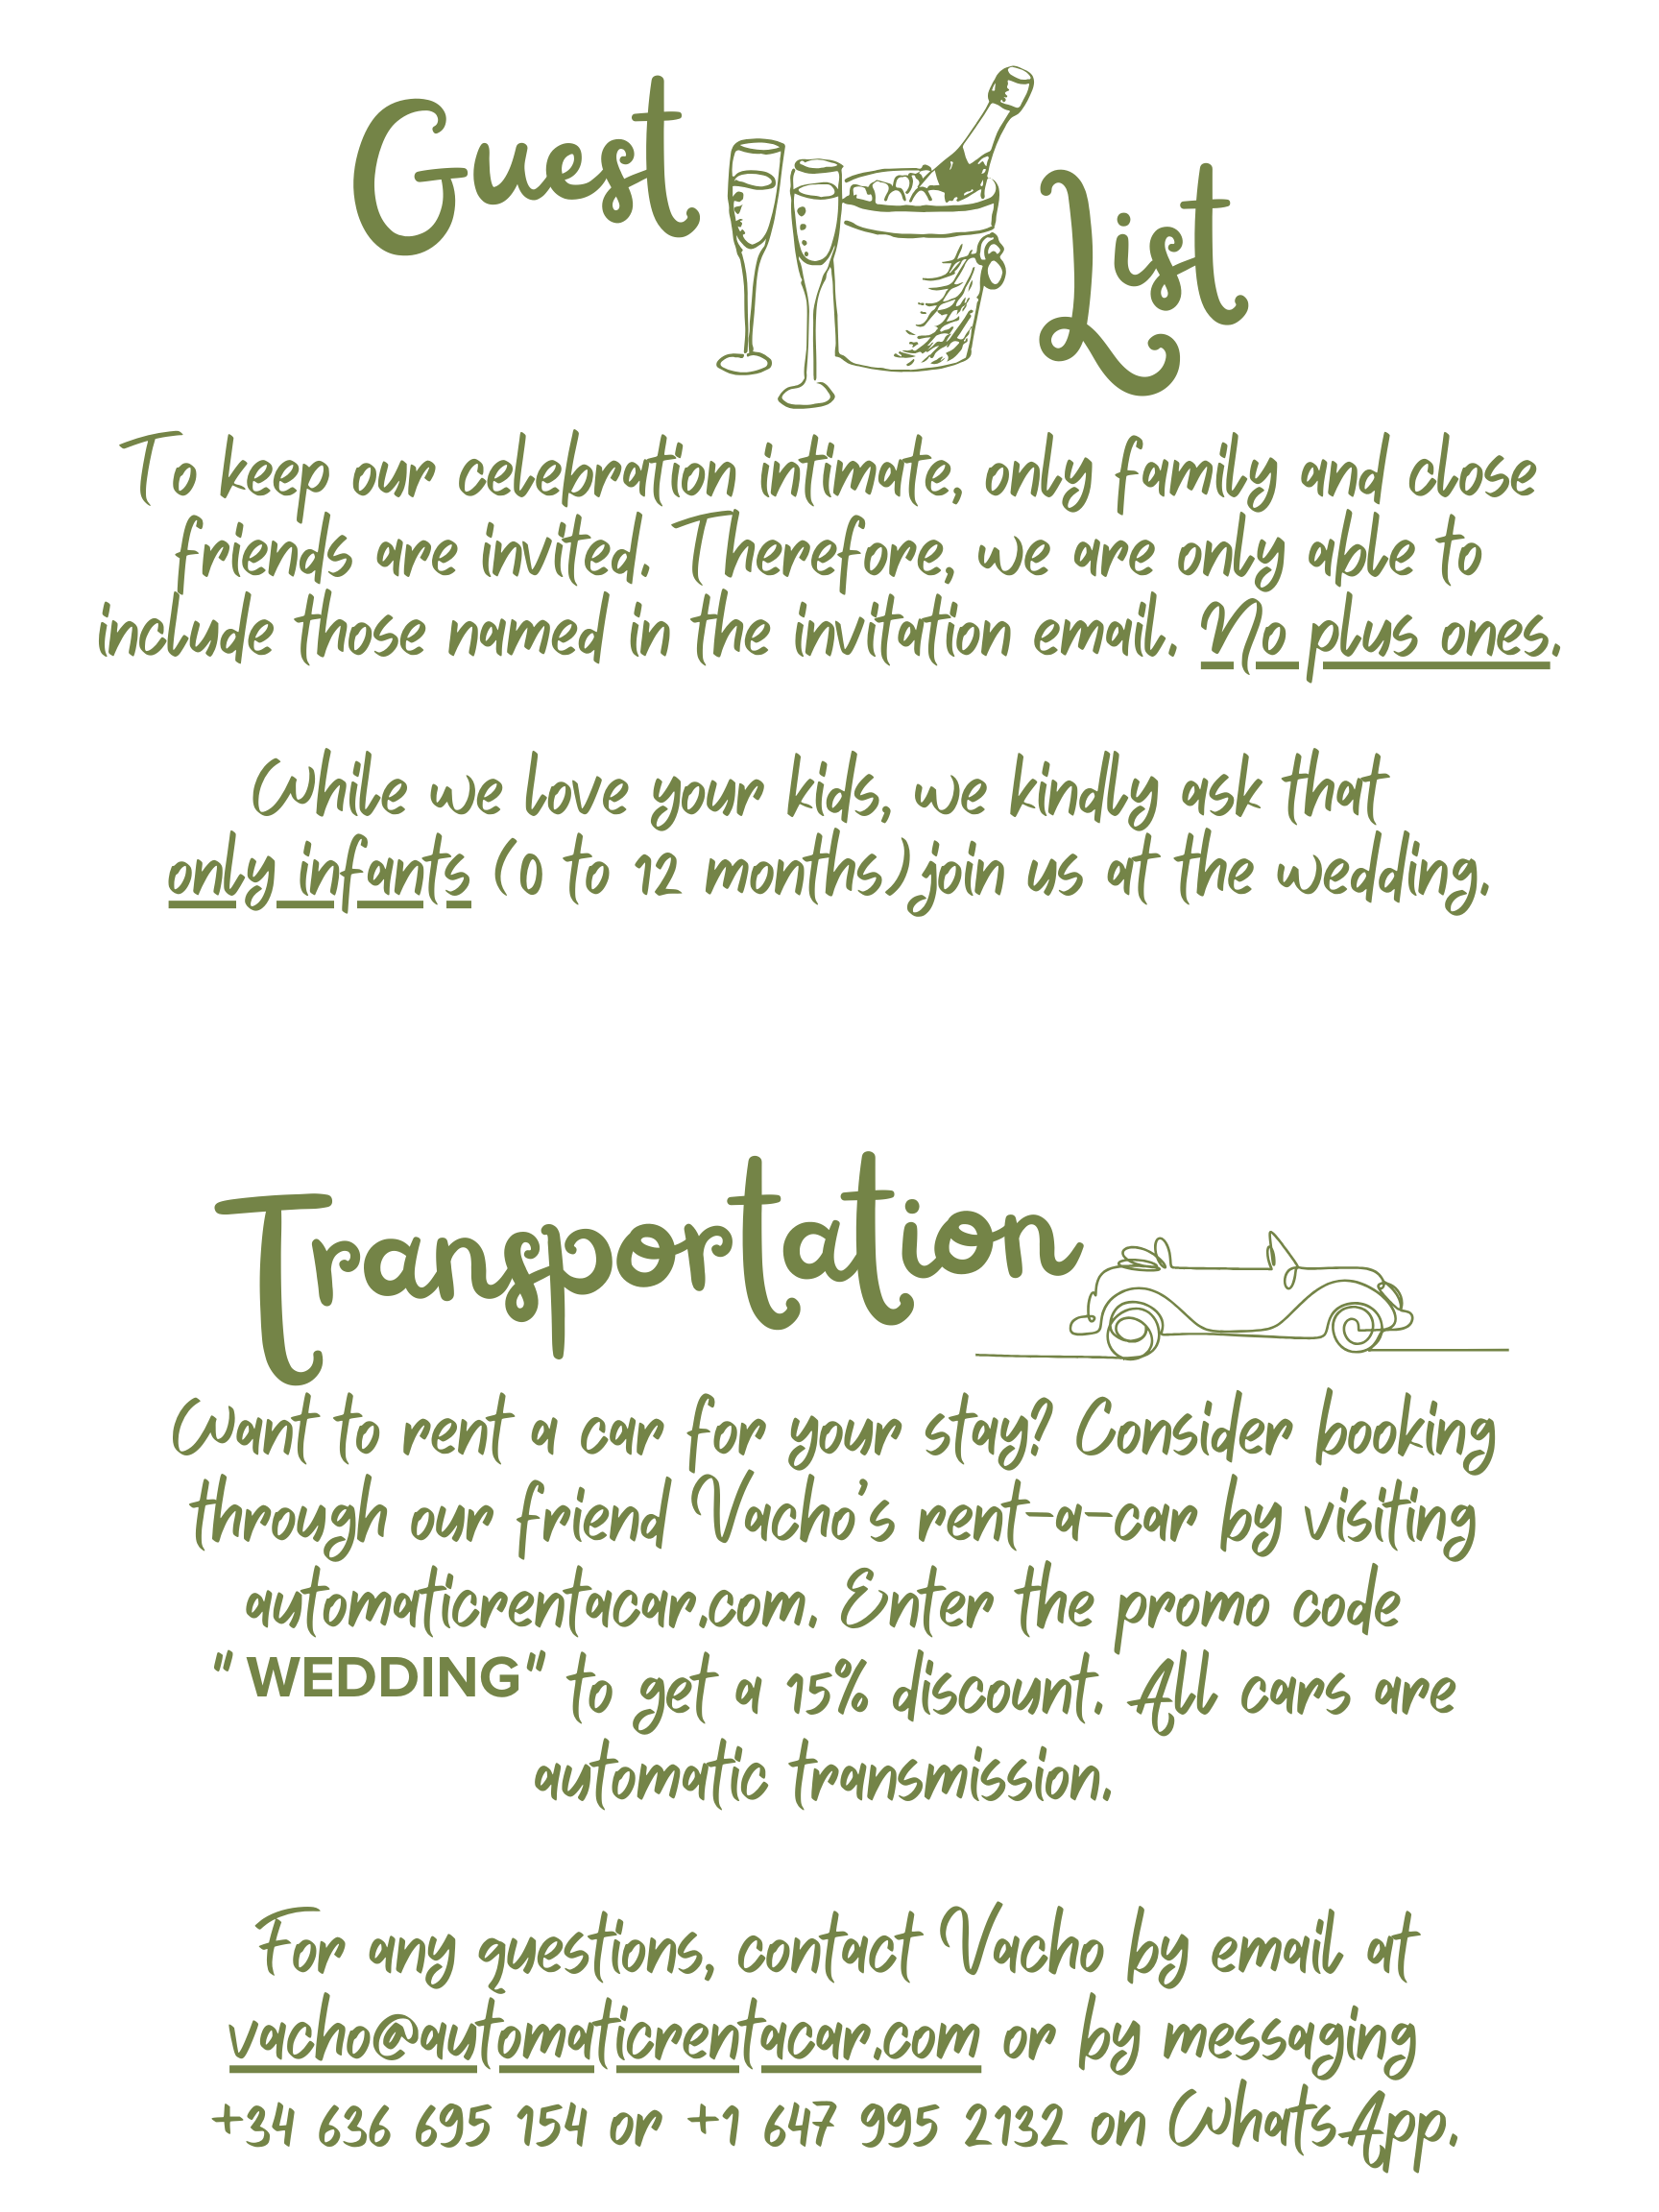 Guest List
To keep our celebration intimate, only family and close
friends are invited. Therefore, we are only able to
include those named in the invitation email. No plus ones.
While we love your kids, we kindly ask that
only infants (0 to 12 months) join us at the wedding.
Transportation
Want to rent a car for your stay? Consider booking
through our friend Vacho's rent-a-car by visiting
automaticrentacar.com. Enter the promo code
"WEDDING" to get a 15% discount. All cars are
automatic transmission.
For any questions, contact Vacho by email at
vacho@automaticrentacar.com or by messaging
+34 636 695 154 or +1 647 995 2132 on WhatsApp.